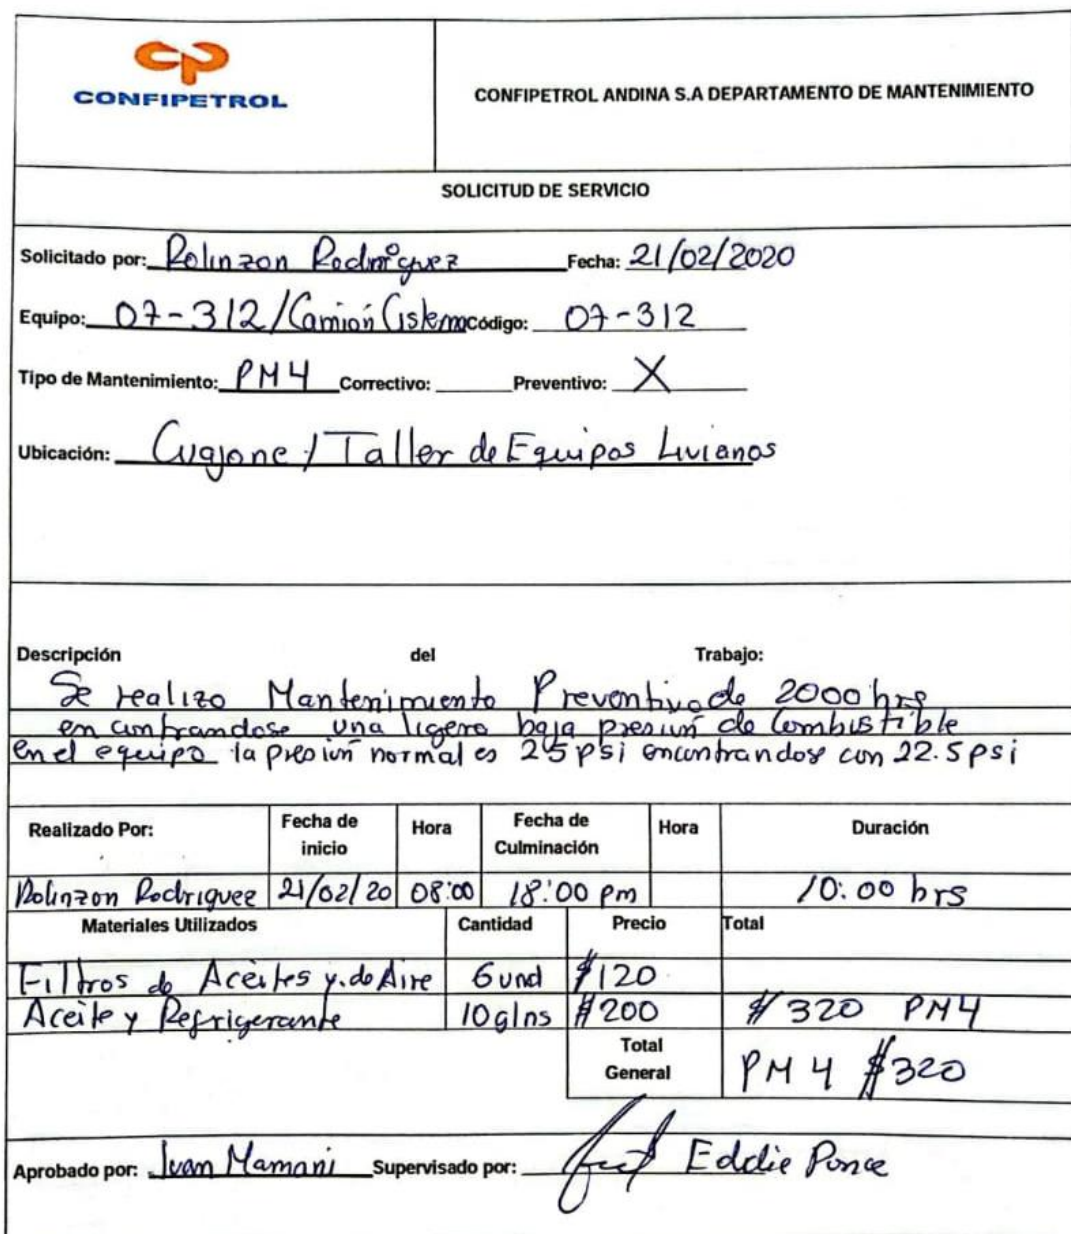 CONFIPETROL
CONFIPETROL ANDINA S.A DEPARTAMENTO DE MANTENIMIENTO
SOLICITUD DE SERVICIO
Solicitado por: Rolinzon Rodriguez Fecha: 21/02/2020
Equipo: 07-312/Camión Cisterna Código: 07-312
Tipo de Mantenimiento: PM4 Correctivo: Preventivo: X
Ubicación: Cuajone / Taller de Equipos Livianos
Descripción del Trabajo:
Se realizo Mantenimiento Preventivo de 2000 hrs
encontrandose una ligera baja presión de Combustible
en el equipo la presión normal es 25 psi encontrandose con 22.5 psi
Realizado Por: Fecha de inicio Hora Fecha de Culminación Hora Duración
Rolinzon Rodriguez 21/02/20 08:00 18:00 pm 10:00 hrs
Materiales Utilizados Cantidad Precio Total
Filtros de Aceites y de Aire 6 und $120
Aceite y Refrigerante 10 glns $200 $ 320 PM4
Total General PM4 $320
Aprobado por: Ivan Mamani Supervisado por: Eddie Ponce